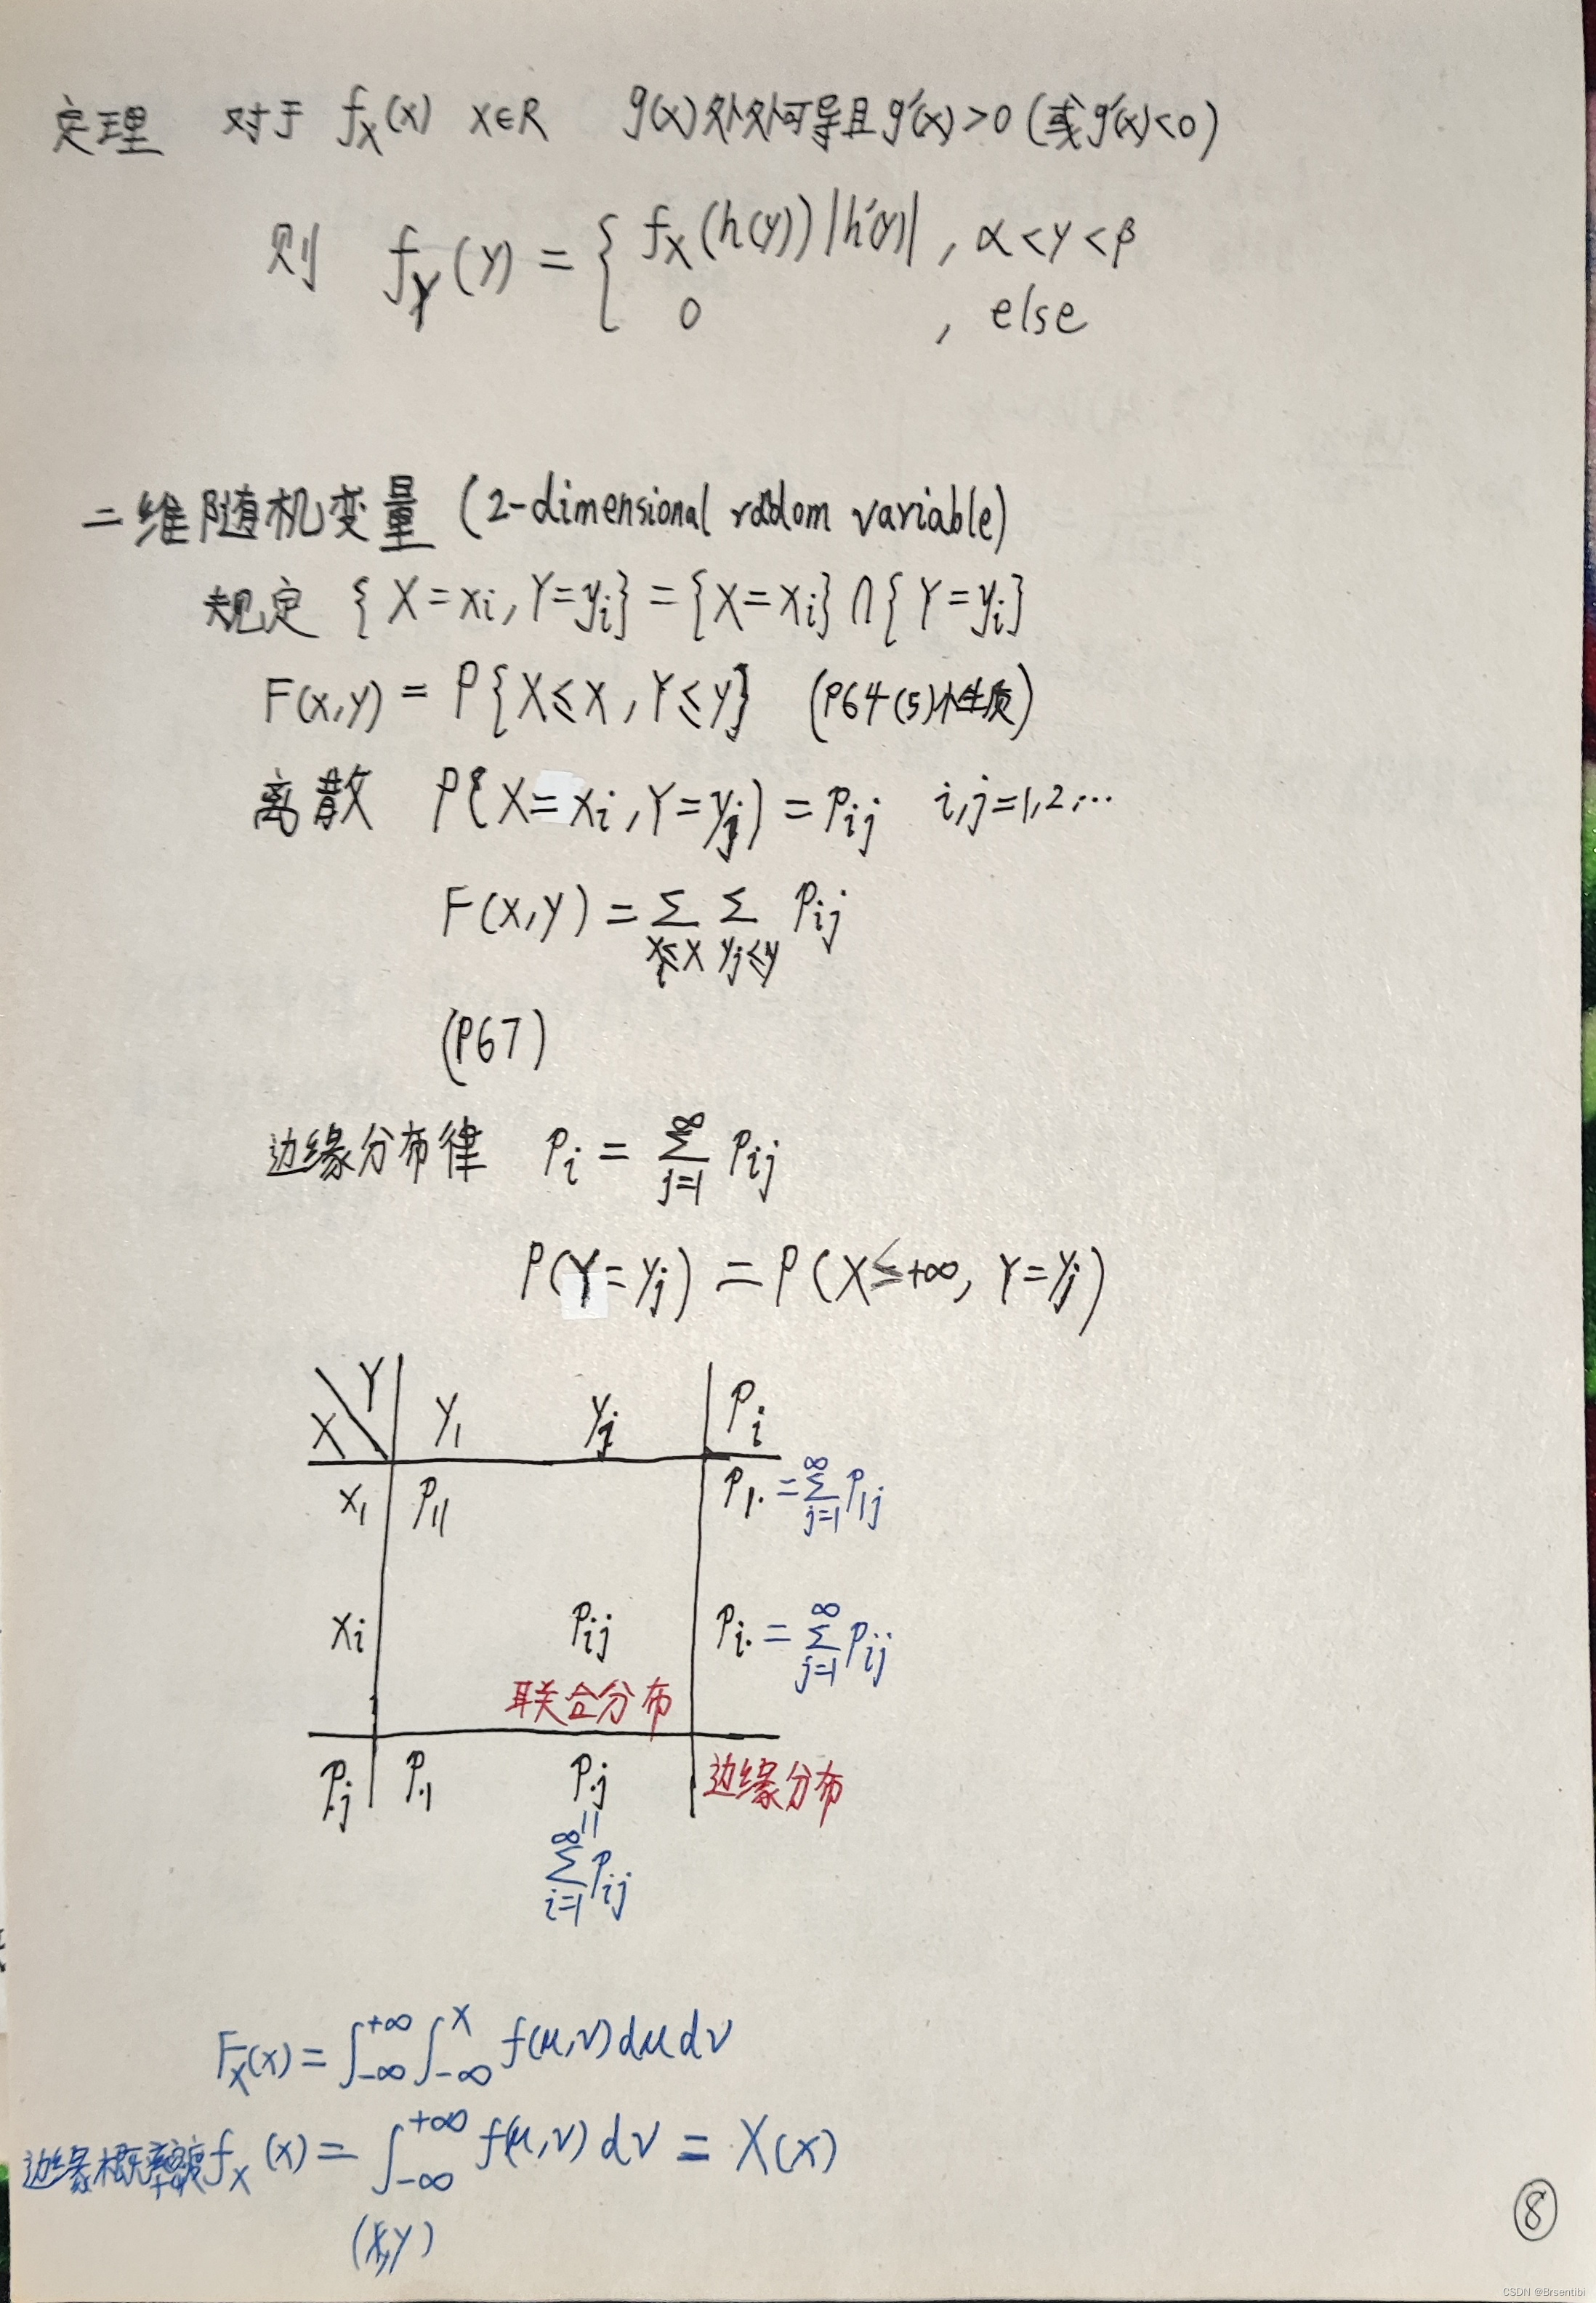 定理 对于 fX(x) x∈R g(x)处处可导且g'(x)>0(或g'(x)<0)
则 fY(y) = { fX(h(y))|h'(y)| , α<y<β
0 , else
二维随机变量 (2-dimensional random variable)
规定 {X=xi, Y=yi} = {X=xi}∩{Y=yi}
F(x,y) = P{X≤x, Y≤y} (P64(5)个性质)
离散 P{X=xi, Y=yj) = Pij i,j=1,2,…
F(x,y) = Σ xi≤x Σ yj≤y Pij
(P67)
边缘分布律 Pi = Σ j=1 ∞ Pij
P(Y=yj) = P(X≤+∞, Y=yj)
X Y y1 yj Pi
x1 P11 P1. = Σ j=1 ∞ P1j
xi Pij Pi. = Σ j=1 ∞ Pij
联合分布
P.j P.1 P.j 边缘分布
||
Σ i=1 ∞ Pij
FX(x) = ∫-∞ +∞ ∫-∞ x f(μ,ν)dμdν
边缘概率密度fX(x) = ∫-∞ +∞ f(μ,ν)dν = X(x)
(x,y)
⑧
CSDN @Brsentibi